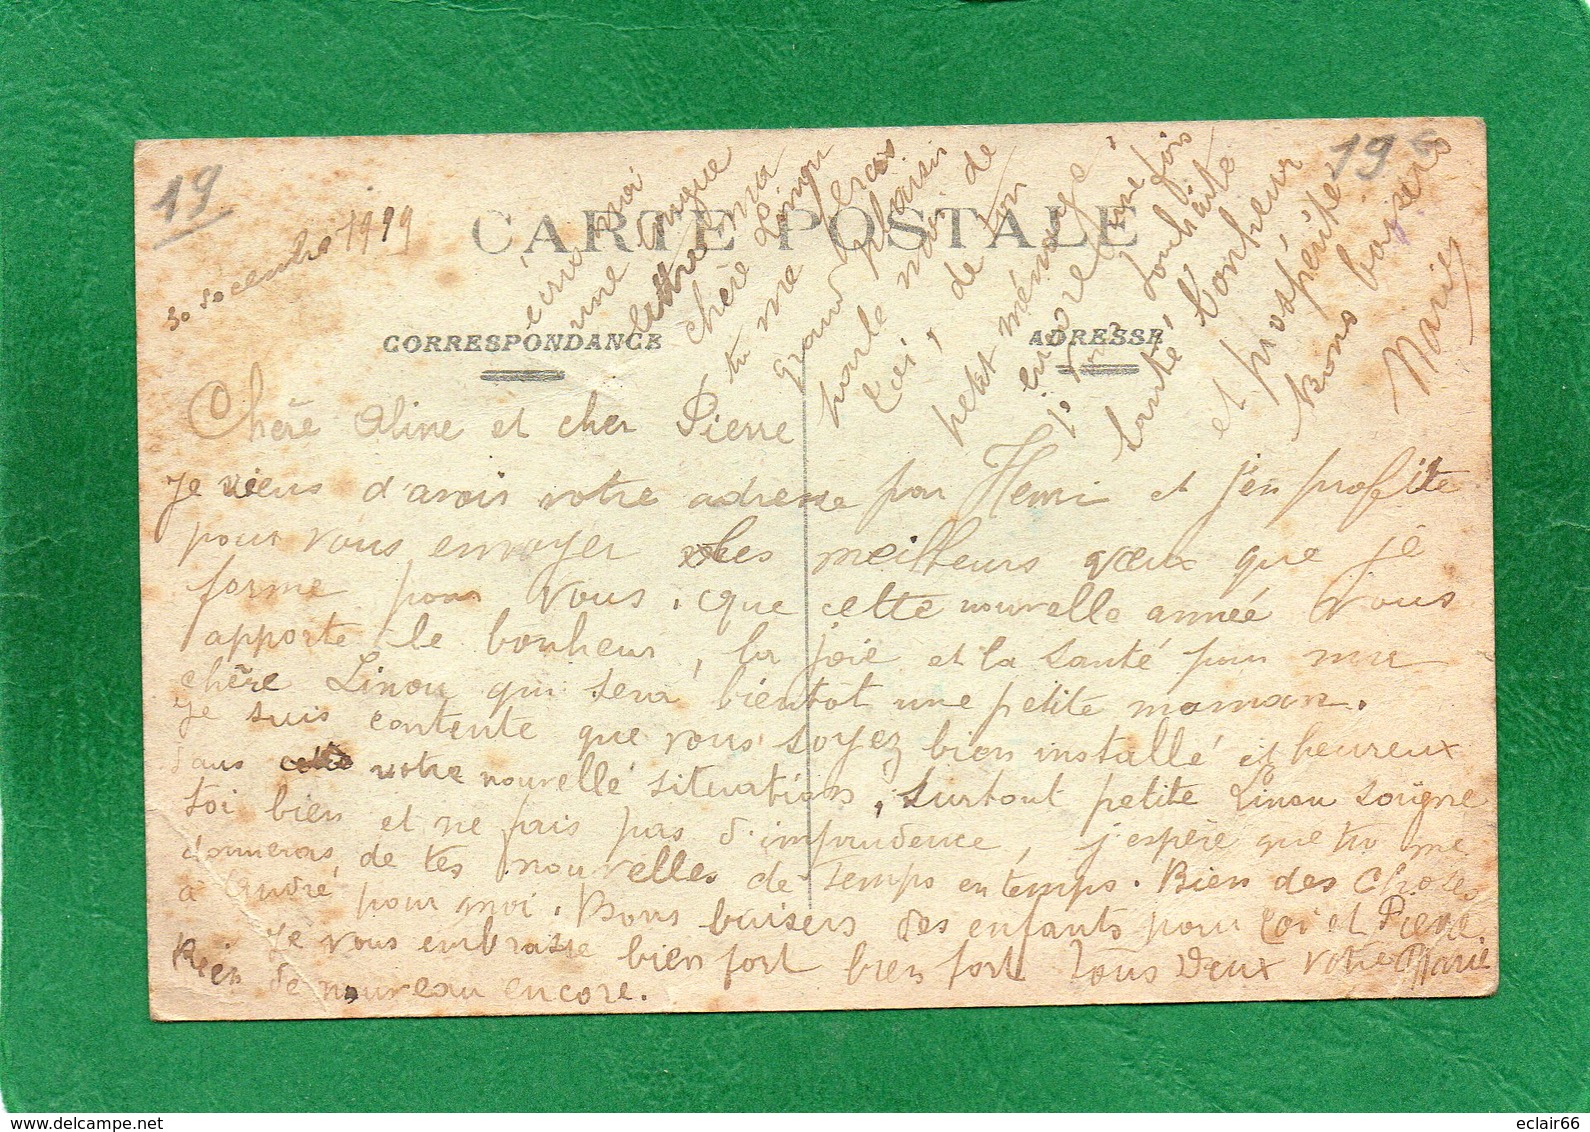 19
19
30 decembre 1919
CARTE POSTALE
CORRESPONDANCE
ADRESSE
Chère Aline et cher Pierre
je viens d'avois votre adresse par Henri et j'en profite
pour vous envoyer les meilleurs vœux que je
forme pour vous, que cette nouvelle année vous
apporte le bonheur, la joie et la santé pour ma
chère Linou qui sera bientôt une petite maman.
je suis contente que vous soyez bien installé et heureux
dans votre nouvelle situation, surtout petite Linou soigne
toi bien et ne fais pas d'imprudence, j'espère que tu me
donneras de tes nouvelles de temps en temps. Bien des choses
à André pour moi. Bons baisers des enfants pour toi et Pierre
je vous embrasse bien fort bien fort tous deux votre Marie
Rien de nouveau encore.
écris moi
une longue
lettre ma
chère Linou
tu me feras
grand plaisir
parle moi de
toi, de ton
petit ménage,
encore une fois
je vous souhaite
santé, bonheur
et prospérité
Bons baisers
Marie
www.delcampe.net
eclair66